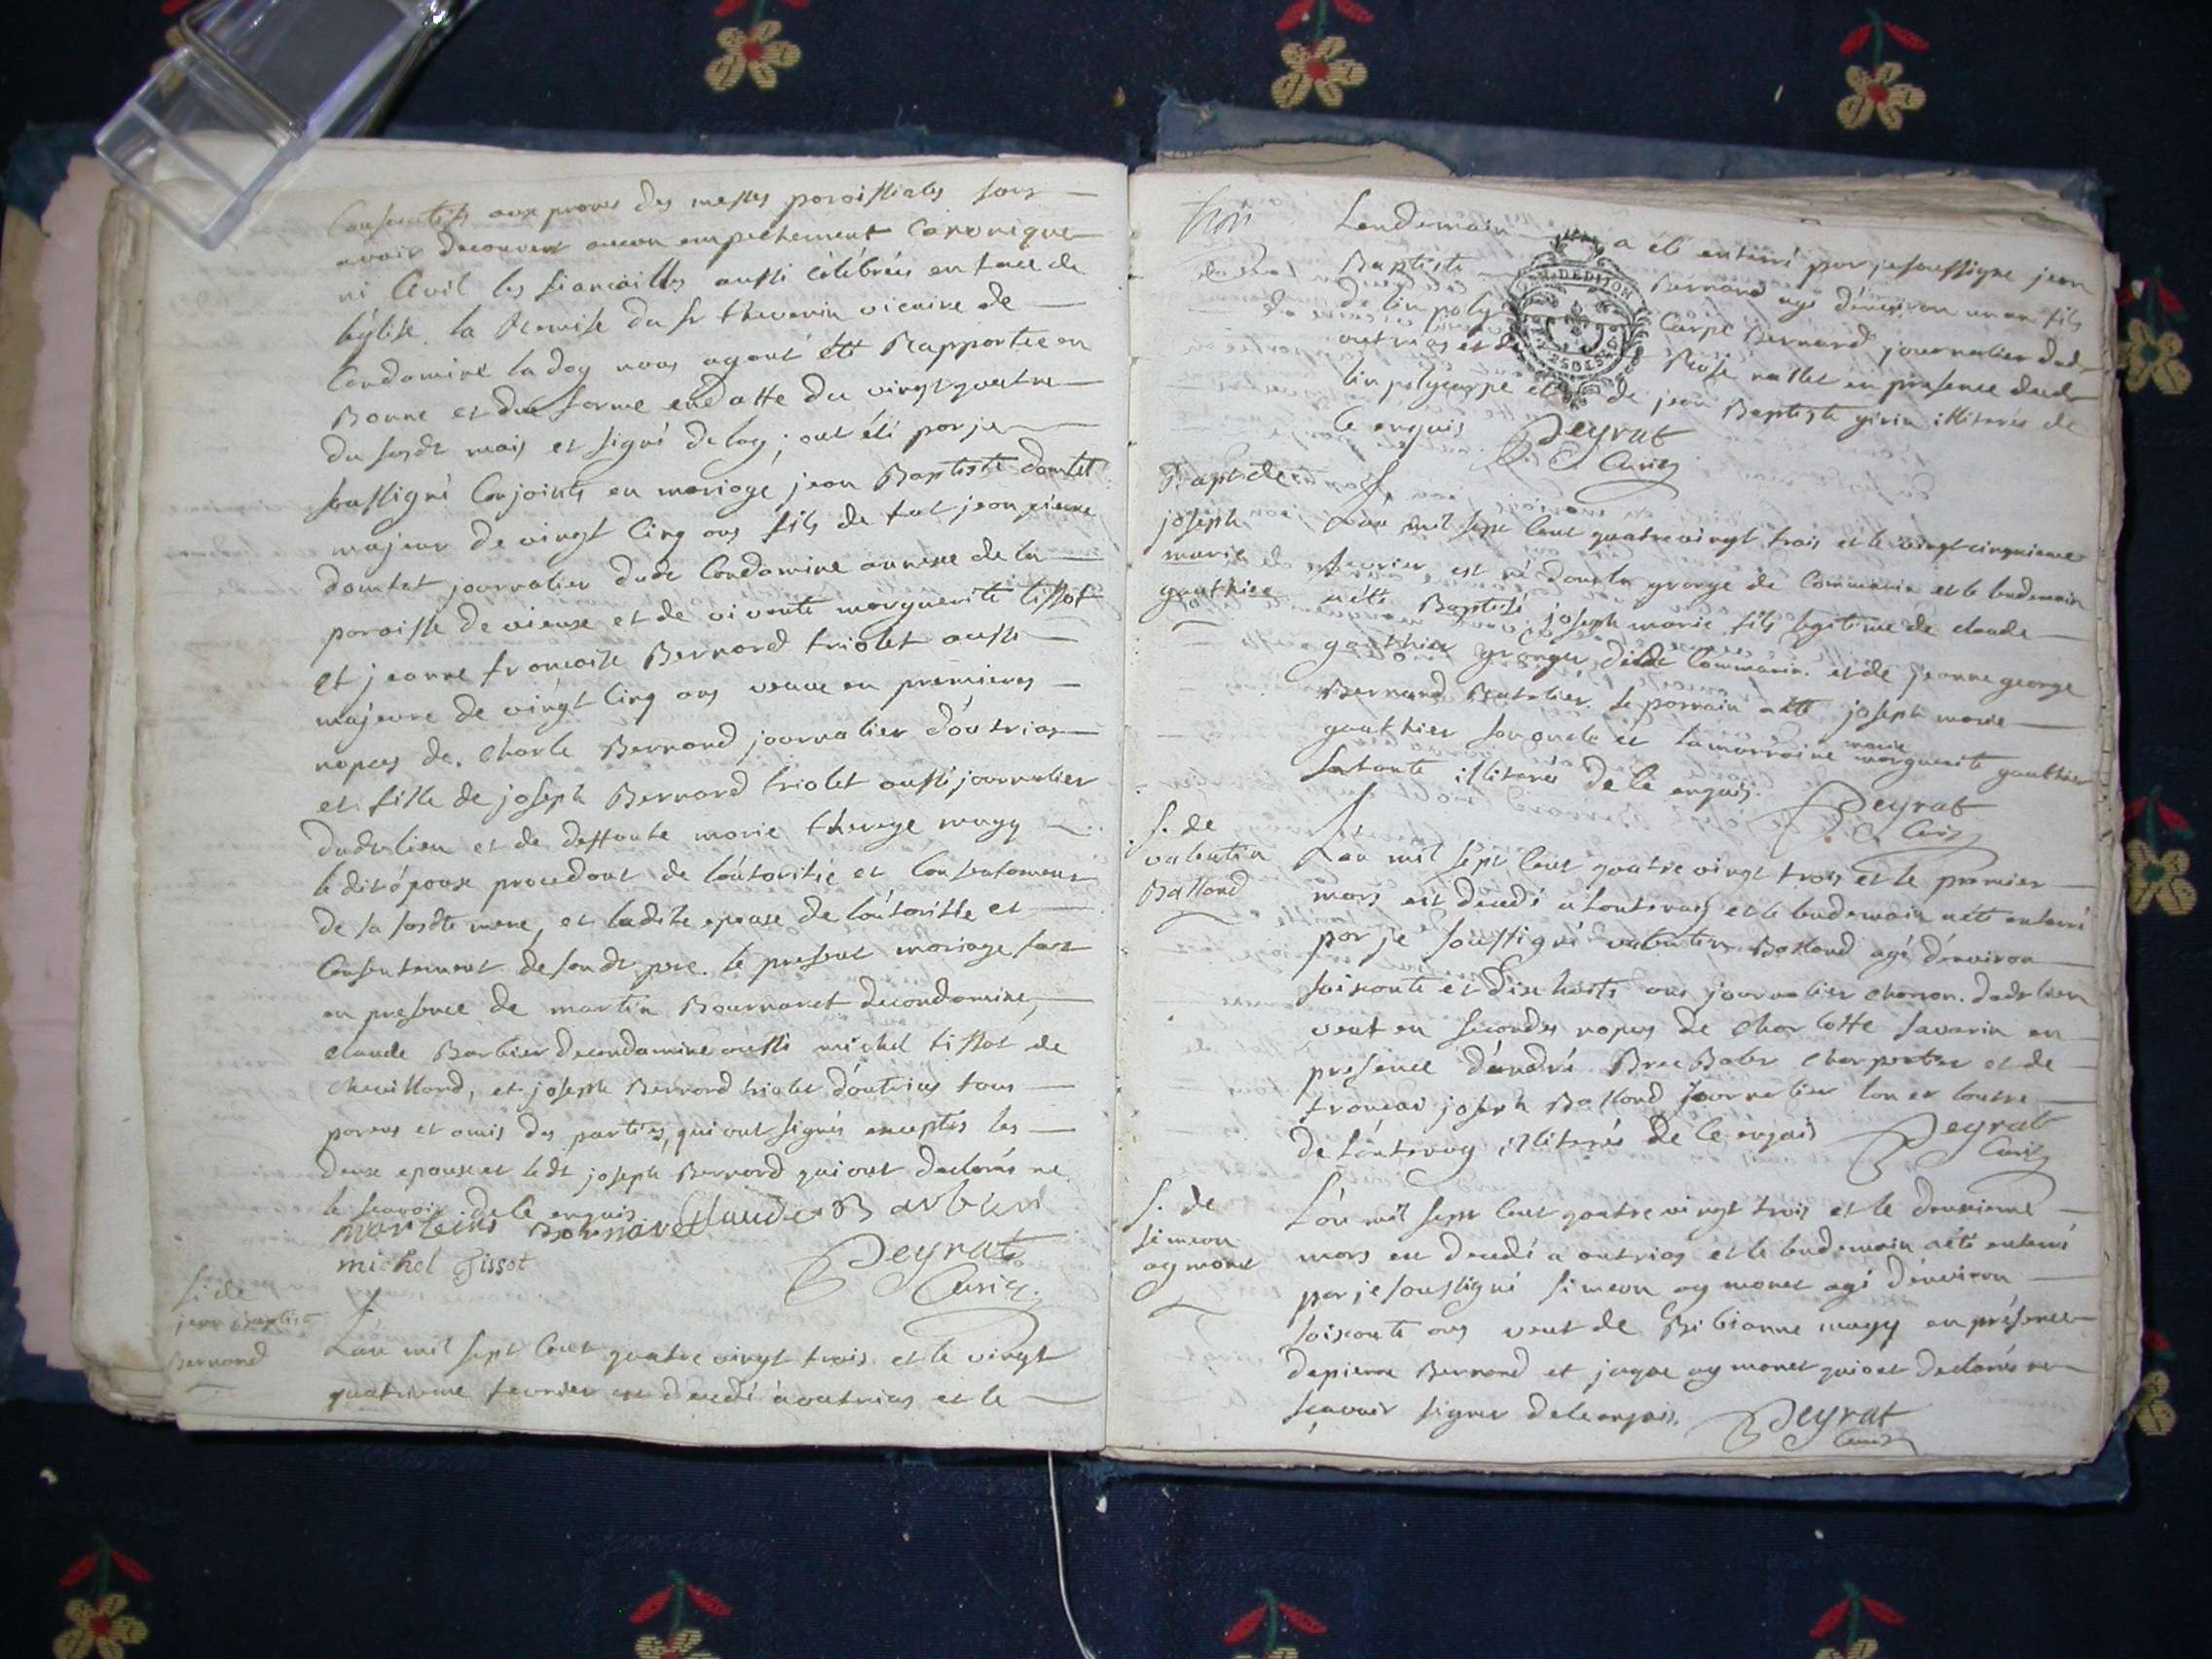 Consecutifs aux prones des messes paroissiales sans
avoir decouvert aucun empechement Canonique
ni Civil les fiancailles aussi célébrées en face de
léglise. la Remise du sr thevenin vicaire de
Condamine ladoy nous ayant été Rapportée en
Bonne et due forme en datte du vingt quatre
du susdt mois et signé deloy; ont été par je
soussigné Conjoints en mariage jean Baptiste
majeur de vingt Cinq ans fils de fut jean pierre
journalier dudt Condamine annexe de la
paroisse de vieuse et de vivante marguerite tissot
et jeanne francoise Bernard triolet aussi
majeure de vingt Cinq ans veuve en premieres
nopces de. Charle Bernard journalier d'outrias
et fille de joseph Bernard triolet aussi journalier
dudt lieu et de deffunte marie therese magy
le dit épouse procedant de l'autoritié et Consentement
de sa susdte mere, et ladite epouse de l'autoritté et
Consentement de sondt pere. le present mariage fait
en presence de martin Bournaret decondamine,
claude Barbier decondamine aussi michel tissot de
chevilliard, et joseph Bernard triolet d'outrias tous
parens et amis des parties, qui ont signés exceptés les
deux epouse et ledt joseph Bernard qui ont declarés ne
le scavoir. de le enquis.
martin Bournaret Claude Barbier
michel Tissot
Peyrat
Curé
S. de
jean Baptiste
Bernard
L'an mil sept Cent quatre vingt trois et le vingt
quatrieme fevrier est decedé a outrias et le
Lendemain a eté enterré par je soussigné jean
Baptiste Bernard agé d'environ un an fils
de lin polycarpe Bernard journalier dud
outrias et de Rose nallet en presence dud
lin polycarpe et de jean Baptiste girin illiterés de
le enquis
Peyrat
Curé
GEN. DE DIJON
Bapt de
joseph
marie
gauthier
L'an mil sept Cent quatre vingt trois et le vingt cinquieme
fevrier est né dans la grange de Commarin et le lendemain
a été Baptisé joseph marie fils legitime de claude
gauthier granger dudt Commarin. et de jeanne george
Bernard le parrain a été joseph marie
gauthier son oncle et la marraine marie marguerite gauthier
sa tante illiterés de le enquis.
Peyrat
Curé
S. de
valentin
Balland
L'an mil sept Cent quatre vingt trois et le premier
mars est decedé a et le lendemain a été enterré
par je soussigné valentin Balland agé d'environ
soixante et dix huits ans journalier dudt lieu
veuf en secondes nopces de Charlotte savarin en
presence d'andré charpentier et de
francois joseph Balland journalier l'un et l'autre
de illiterés de le enquis
Peyrat
Curé
S. de
simeon
aymonet
L'an mil sept Cent quatre vingt trois et le deuxieme
mars est decedé a outrias et le lendemain a été enterré
par je soussigné simeon aymonet agé d'environ
soixante ans veuf de Bibianne magy en présence
de pierre Bernard et jaque aymonet qui ont declarés ne
scavoir signer de le enquis.
Peyrat
Curé